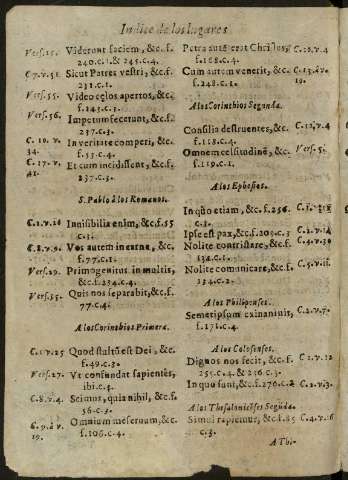 Indice de los lugares
Vers. 15. Viderunt faciem, &c. f.
240. c. 1. & 245. c. 4.
C. 7. v. 51. Sicut Patres vestri, &c. f.
231. c. 1.
Vers. 55. Video cęlos apertos, &c.
f. 143. c. 3.
Vers. 56. Impetum fecerunt, &c. f.
237. c. 3.
C. 10. v. In veritate comperi, &c.
34. f. 53. c. 4.
C. 17. v. Et cum incidissent, &c. f.
41. 237. c. 3.
S. Pablo à los Romanos.
C. 1. v. 20 Inuisibilia enim, &c. f. 55
c. 3.
C. 8. v. 9. Vos autem in carne, &c.
f. 77. c. 1.
Vers. 29. Primogenitus in multis,
&c. f. 234. c. 4.
Vers. 35. Quis nos separabit, &c. f.
77. c. 4.
A los Corinthios Primera.
C. 1. v. 25 Quod stultũ est Dei, &c.
f. 49. c. 3.
Vers. 27. Vt confundat sapientes,
ibi. c. 4.
C. 8. v. 4. Scimus, quia nihil, &c. f.
56. c. 3.
C. 9. à v. Omnium me seruum, &c.
19. f. 106. c. 4.
Petra autẽ erat Christus, C. 10. v. 4
f. 168. c. 4.
Cum autem venerit, &c. C. 13. à v.
f. 248. c. 1. 10.
A los Corinthios Segunda.
Consilia destruentes, &c. C. 10. v. 4
f. 118. c. 4.
Omnem celsitudinẽ, &c. Vers. 5.
f. 119. c. 1.
A los Ephesios.
In quo etiam, &c. f. 256.
c. 3.
Ipse est pax, &c. f. 204. c. 3 C. 2. v. 14
Nolite contristare, &c. f. C. 4. v. 30
134. c. 1.
Nolite comunicare, &c. f. C. 5. v. 11
134. c. 2.
A los Philipenses.
Semetipsum exinaniuit, C. 2. v. 7.
f. 171. c. 4.
A los Colosenses.
Dignos nos fecit, &c. f. C. 1. v. 12
255. c. 4. & 256. c. 3.
In quo sunt, &c. f. 276. c. 2 C. 2. v. 3.
A los Thesalonicẽses Segũda.
Simul rapiemur, &c. f. 85 C. 4. v. 16
c. 3.
A Thi-